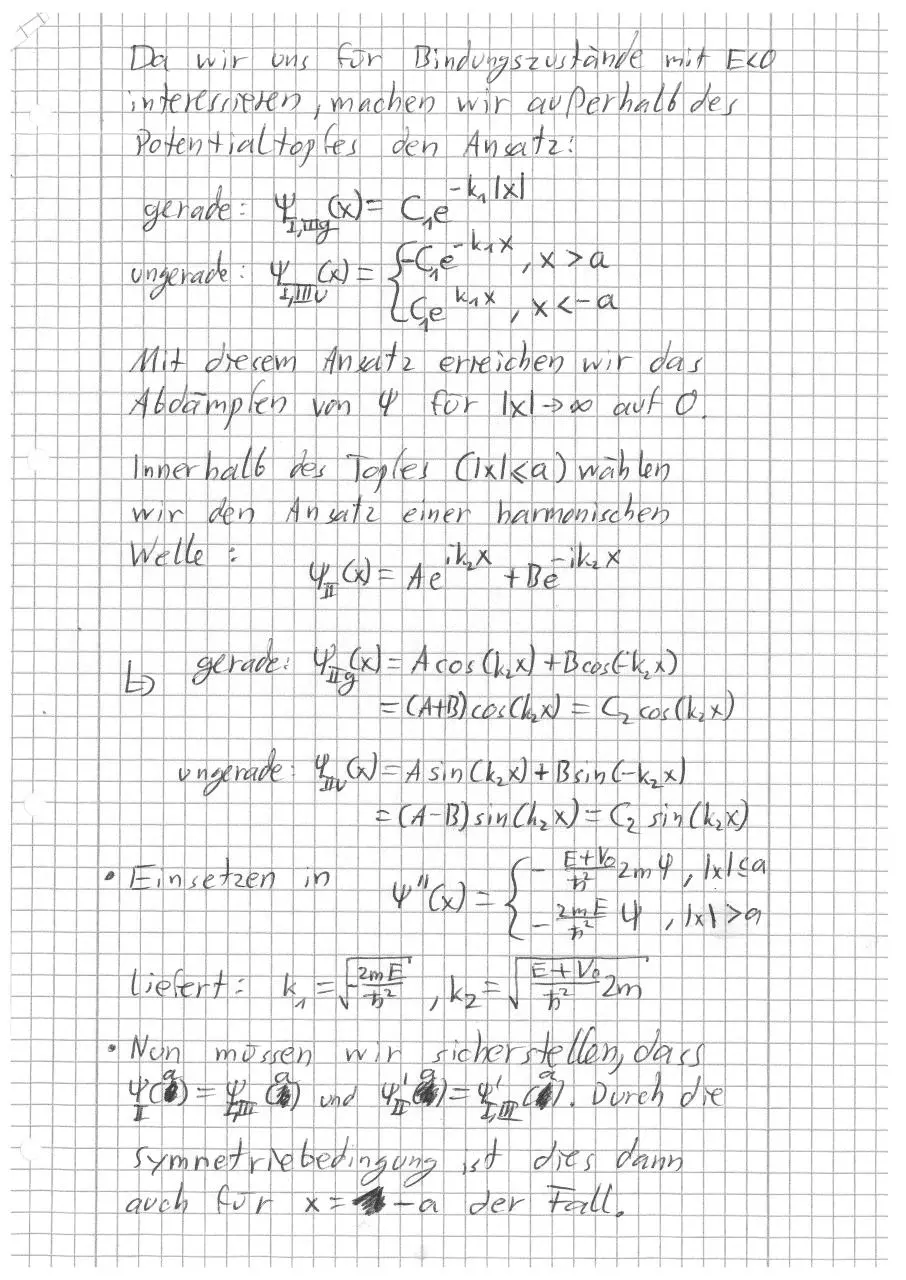 Da wir uns für Bindungszustände mit E<0
interessieren, machen wir außerhalb des
Potentialtopfes den Ansatz:
gerade: Ψ_{I,III g}(x) = C₁e^{-k₁|x|}
ungerade: Ψ_{I,III u}(x) = { -C₁e^{-k₁x} , x > a
C₁e^{k₁x} , x < -a
Mit diesem Ansatz erreichen wir das
Abdämpfen von Ψ für |x| → ∞ auf 0.
Innerhalb des Topfes (|x| ⩽ a) wählen
wir den Ansatz einer harmonischen
Welle: Ψ_{II}(x) = Ae^{ik₂x} + Be^{-ik₂x}
↳ gerade: Ψ_{II g}(x) = A cos(k₂x) + B cos(-k₂x)
= (A+B) cos(k₂x) = C₂ cos(k₂x)
ungerade: Ψ_{II u}(x) = A sin(k₂x) + B sin(-k₂x)
= (A-B) sin(k₂x) = C₂ sin(k₂x)
• Einsetzen in Ψ''(x) = { -\frac{E+V₀}{ħ²} 2m Ψ , |x| ≤ a
-\frac{2mE}{ħ²} Ψ , |x| > a
liefert: k₁ = \sqrt{-\frac{2mE}{ħ²}} , k₂ = \sqrt{\frac{E+V₀}{ħ²} 2m}
• Nun müssen wir sicherstellen, dass
Ψ_{II}(a) = Ψ_{I,III}(a) und Ψ'_{II}(a) = Ψ'_{I,III}(a). Durch die
Symmetriebedingung ist dies dann
auch für x = -a der Fall.